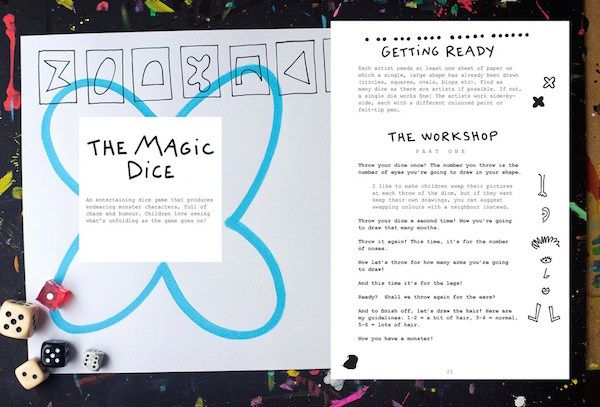 THE MAGIC
DICE
An entertaining dice game that produces
endearing monster characters, full of
charm and humour. Children love seeing
what's unfolding as the game goes on!
GETTING READY
Each artist needs at least one sheet of paper on
which a single, large shape has already been drawn
(circles, squares, ovals, blops etc). Find as
many dice as there are artists if possible. If not,
a single die works fine! The artists work side-by-
side, each with a different coloured paint or
felt-tip pen.
THE WORKSHOP
PART ONE
Throw your dice once! The number you throw is the
number of eyes you're going to draw in your shape.
I like to make children swap their pictures
at each throw of the dice, but if they want
keep their own drawings, you can suggest
swapping colours with a neighbour instead.
Throw your dice a second time! Now you're going
to draw that many mouths.
Throw it again! This time, it's for the number
of noses.
Now let's throw for how many arms you're going
to draw!
And this time it's for the legs!
Ready? Shall we throw again for the ears?
And to finish off, let's draw the hair! Here are
my guidelines: 1-2 = a bit of hair, 3-4 = normal,
5-6 = lots of hair.
Now you have a monster!
21